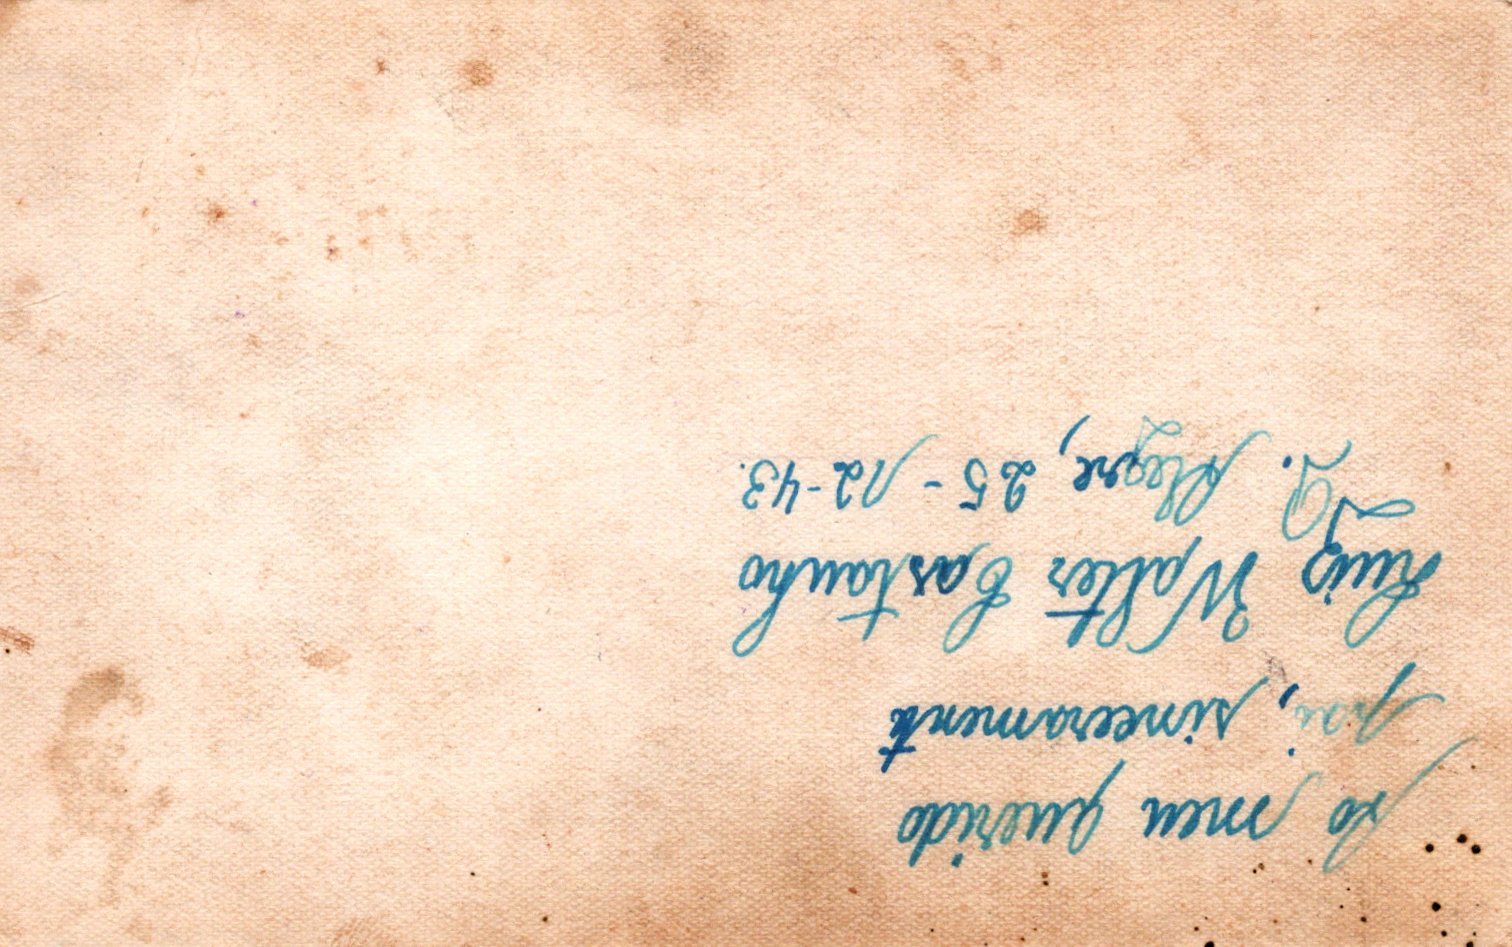 Ao meu querido
pai, sinceramente
Luiz Walter Castanho
P. Alegre, 25-12-43.